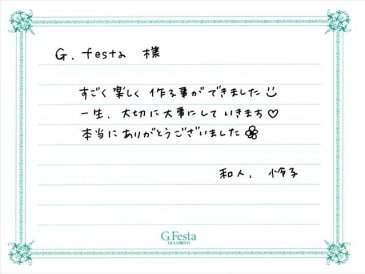 G. festa 様
すごく楽しく作る事ができました
一生、大切に大事にしていきます♡
本当にありがとうございました
和人、怜子
G.Festa